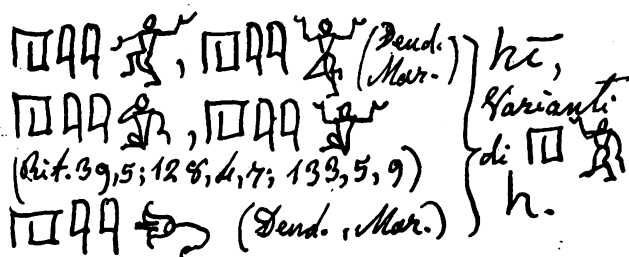 𓉔𓇋𓇋, 𓉔𓇋𓇋 (Dend. Mar.)
𓉔𓇋𓇋, 𓉔𓇋𓇋
(Rit. 39,5; 128,4,7; 133,5,9)
𓉔𓇋𓇋 (Dend., Mar.)
hī,
Varianti
di 𓉔
h.